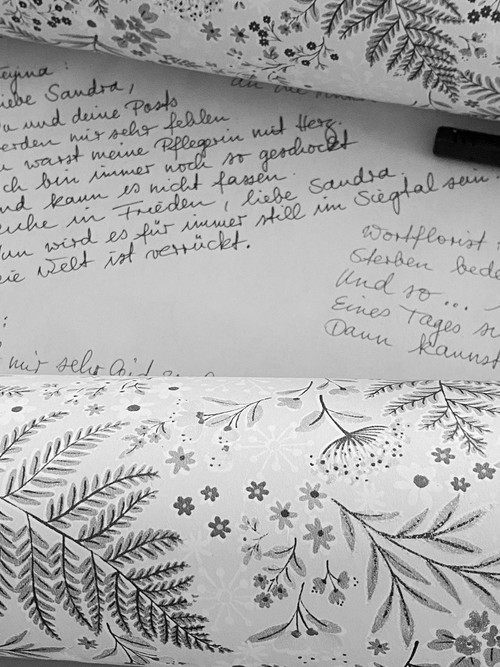 Liebe Sandra,
du und deine Posts
werden mir sehr fehlen
du warst meine Pflegerin mit Herz.
Ich bin immer noch so geschockt
und kann es nicht fassen.
Ruhe in Frieden, liebe Sandra.
Nun wird es für immer still im Siegtal sein.
Die Welt ist verrückt.
Wortflorist
Sterben bede
Und so ...
Eines Tages
Dann kannst
mir sehr